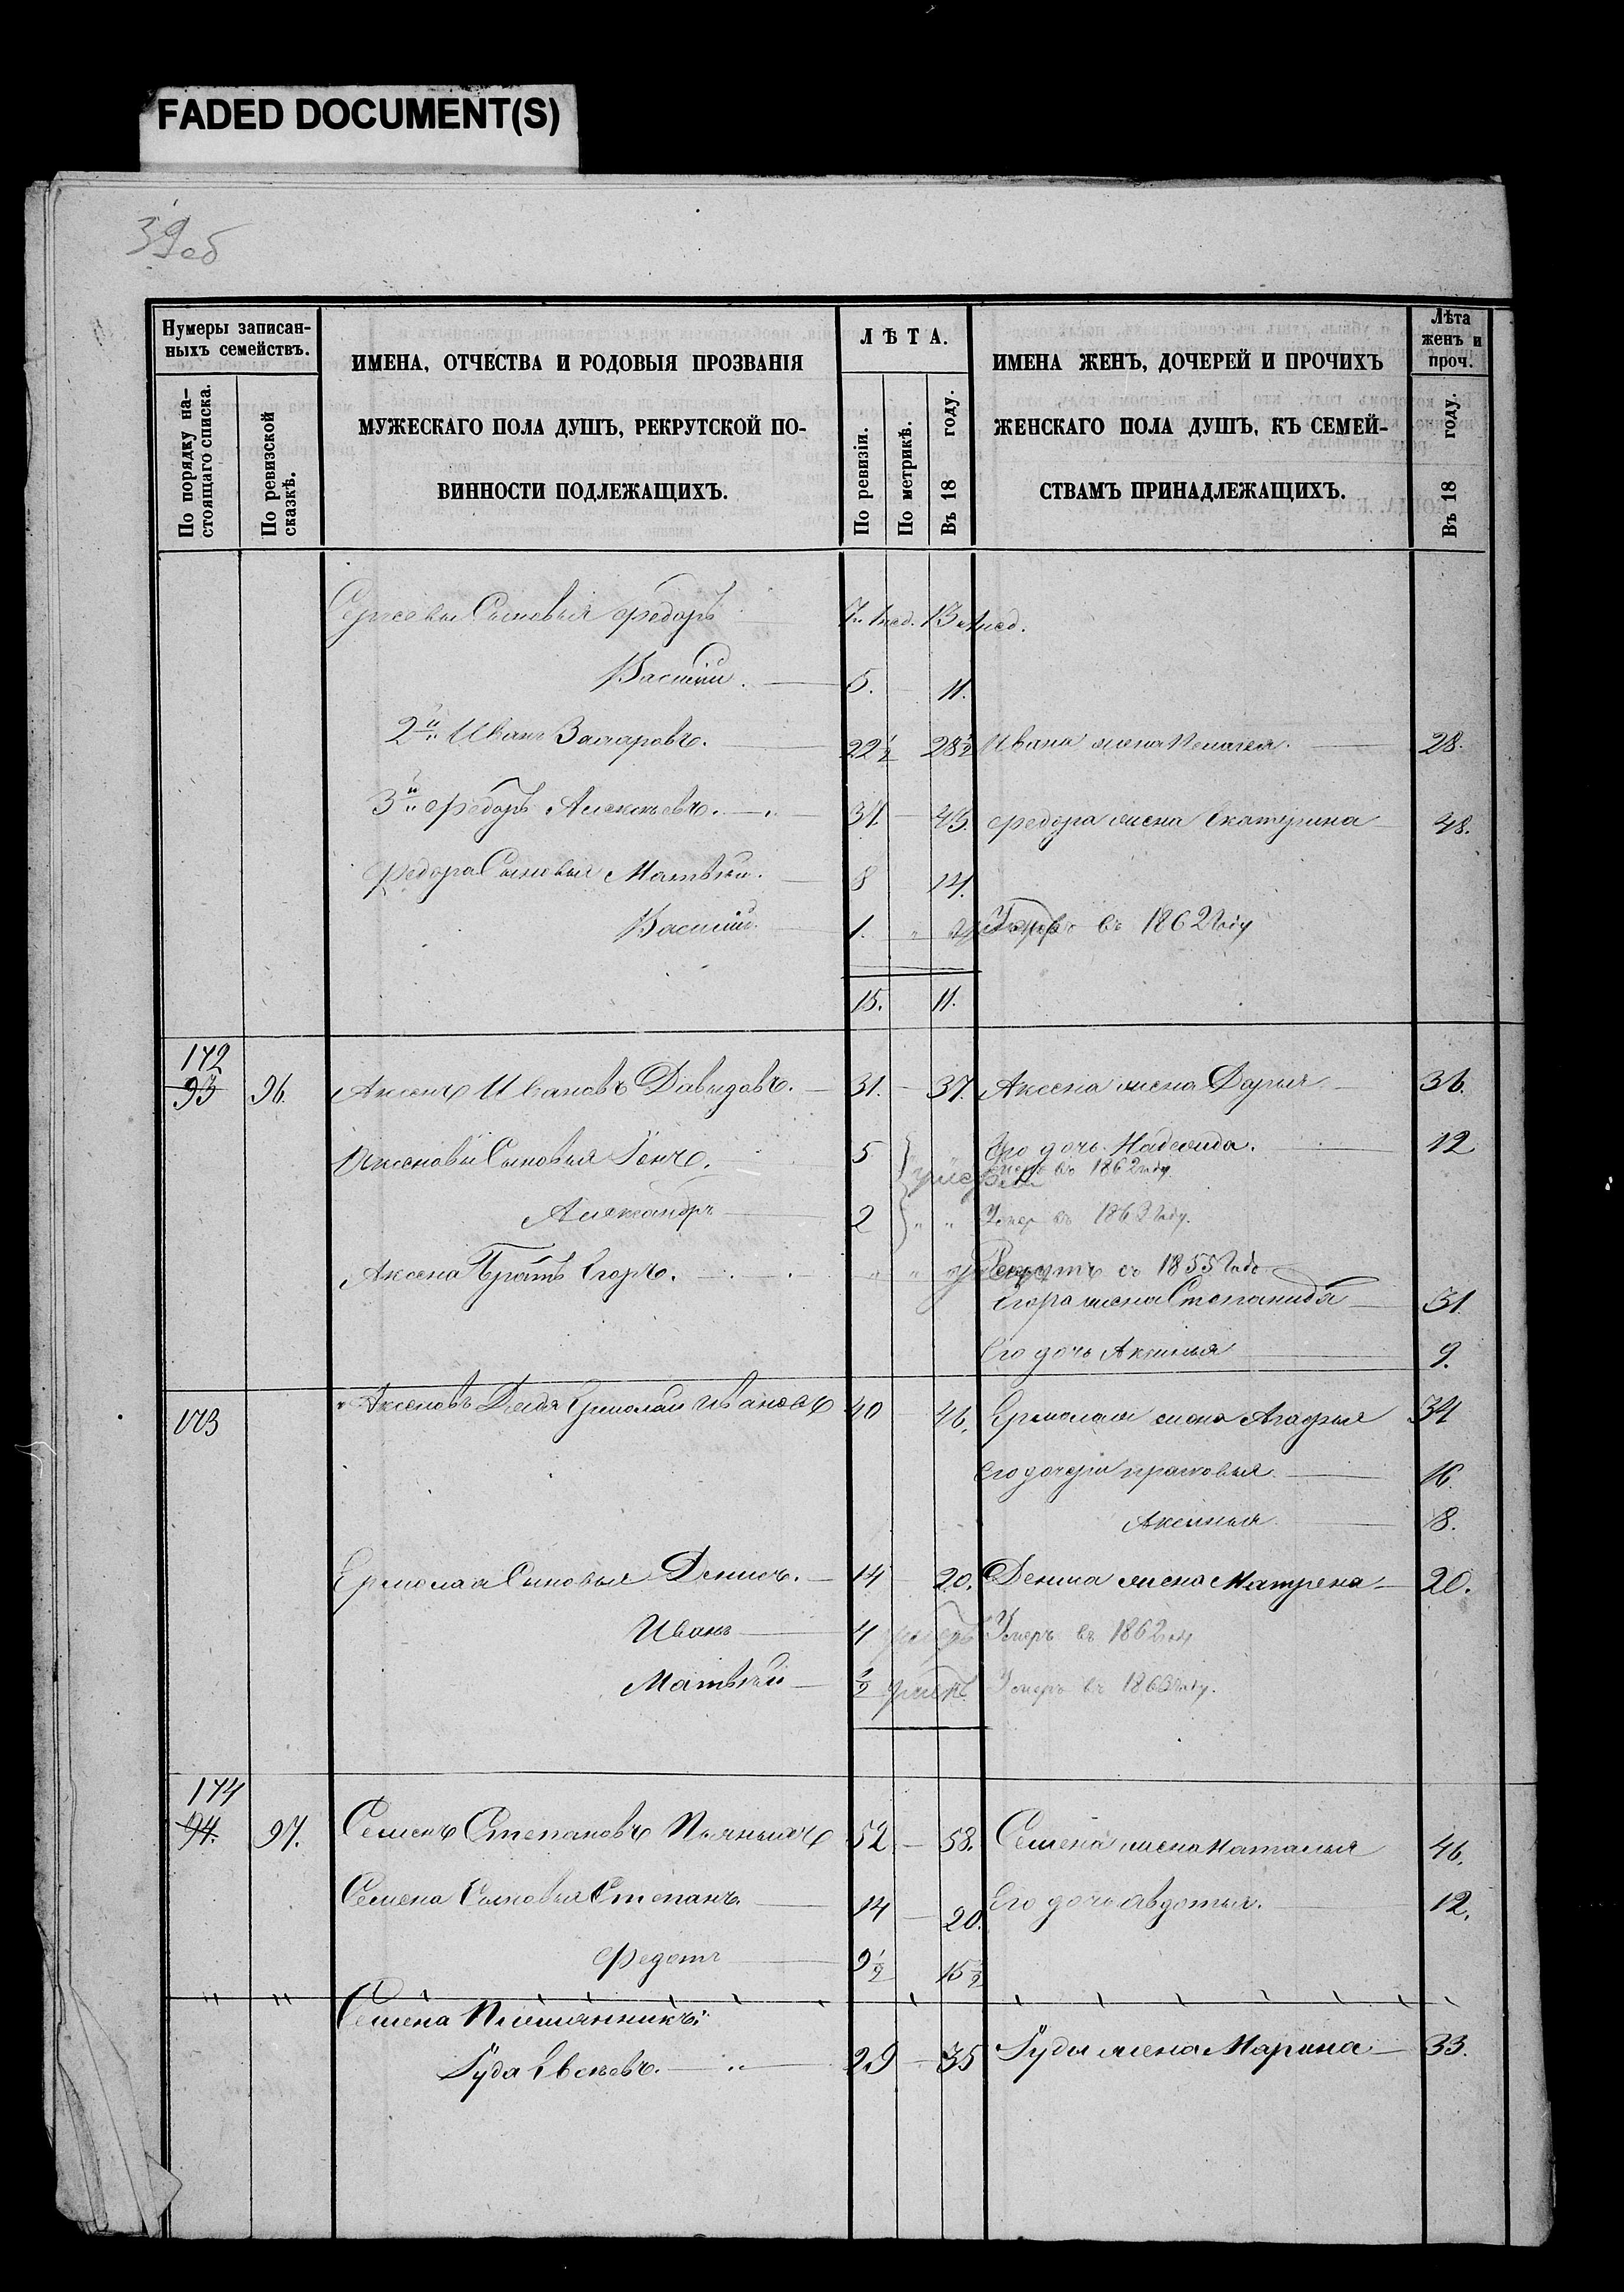 FADED DOCUMENT(S)
39 об
Нумеры записан-
ныхъ семействъ.
По порядку на-
стоящаго списка.
По ревизской
сказкѣ.
ИМЕНА, ОТЧЕСТВА И РОДОВЫЯ ПРОЗВАНІЯ
МУЖЕСКАГО ПОЛА ДУШЪ, РЕКРУТСКОЙ ПО-
ВИННОСТИ ПОДЛЕЖАЩИХЪ.
ЛѢТА.
По ревизіи.
По метрикѣ.
Въ 18 году.
ИМЕНА ЖЕНЪ, ДОЧЕРЕЙ И ПРОЧИХЪ
ЖЕНСКАГО ПОЛА ДУШЪ, КЪ СЕМЕЙ-
СТВАМЪ ПРИНАДЛЕЖАЩИХЪ.
Лѣта
женъ и
проч.
Въ 18 году.
Сыновья Федоръ
Василій. 5. 11.
2й Иванъ Захаровъ. 22½ 28½ Ивана жена Пелагея. 28.
3й Федоръ Алексѣевъ. 43. Федора жена Екатерина 48.
Федора Сыновья Матвѣй. 8 14.
Василій. 1. въ 1862 Году
15. 11.
172
93 96. Аксенъ Ивановъ Давыдовъ. 31. 37. Аксена жена Дарья 36.
Аксеновы Сыновья 5 Его дочь Надежда. 12
умеръ въ 1862 году
Александръ 2 Умер въ Году.
Аксена Братъ Егоръ. Рекрутъ съ 1855 Года
Егора жена Степанида 31.
Его дочь Аксинья 9.
173 Аксеновъ Дядя Ермолай Ивановъ 40 46. Ермолая жена Агафья 34
Его дочери прасковья 16.
Аксинья 8.
Ермолая Сыновья Денисъ. 14 20. Дениса жена Матрена 20.
Иванъ 4 умеръ Умеръ въ 1862 году
Матвѣй ½ умеръ Умеръ въ году.
174
94. 97. Семенъ Степановъ 52 58. Семена жена Наталья 46.
Семена Сыновья Степанъ. 14 20. Его дочь Авдотья. 12.
Федотъ 9½ 15½
Семена Племянникъ:
Іуда Евсѣевъ. 29 35 Іуды жена Марина 33.